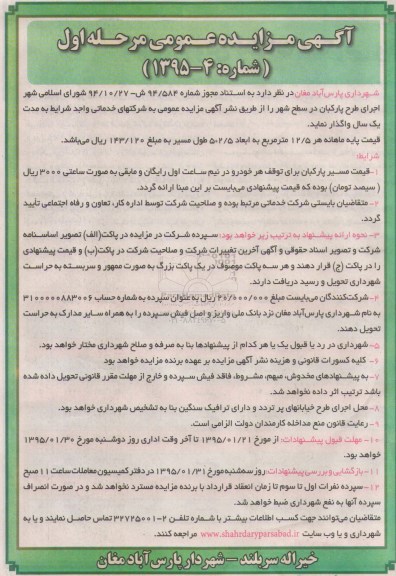 آگهی مزایده عمومی مرحله اول
( شماره: ۴-۱۳۹۵ )
شهرداری پارس‌آباد مغان در نظر دارد به استناد مجوز شماره ۹۴/۵۸۴ش- ۹۴/۱۰/۲۷ شورای اسلامی شهر
اجرای طرح پارکبان در سطح شهر را از طریق نشر آگهی مزایده عمومی به شرکتهای خدماتی واجد شرایط به مدت
یک سال واگذار نماید.
قیمت پایه ماهانه هر ۱۲/۵ مترمربع به ابعاد ۲/۵*۵ طول مسیر به مبلغ ۱۴۳/۱۲۰ ریال می‌باشد.
شرایط:
۱-قیمت مسیر پارکبان برای توقف هر خودرو در نیم ساعت اول رایگان و مابقی به صورت ساعتی ۳۰۰۰ ریال
( سیصد تومان) بوده که قیمت پیشنهادی می‌بایست بر این مبنا ارائه گردد.
۲-متقاضیان بایستی شرکت خدماتی مرتبط بوده و صلاحیت شرکت توسط اداره کار، تعاون و رفاه اجتماعی تأیید
گردد.
۳- نحوه ارائه پیشنهاد به ترتیب زیر خواهد بود: سپرده شرکت در مزایده در پاکت(الف) تصویر اساسنامه
شرکت و تصویر اسناد حقوقی و آگهی آخرین تغییرات شرکت و صلاحیت شرکت در پاکت(ب) و قیمت پیشنهادی
را در پاکت (ج) قرار دهند و هر سه پاکت موصوف در یک پاکت بزرگ به صورت ممهور و سربسته به حراست
شهرداری تحویل و رسید دریافت دارند.
۴-شرکت‌کنندگان می‌بایست مبلغ ۲۰/۰۰۰/۰۰۰ ریال به عنوان سپرده به شماره حساب ۳۱۰۰۰۰۰۸۸۳۰۰۶
به نام شهرداری پارس‌آباد مغان نزد بانک ملی واریز و اصل فیش سپرده را به همراه سایر مدارک به حراست
تحویل دهند.
۵-شهرداری در رد یا قبول یک یا هر کدام از پیشنهادها بنا به صرفه و صلاح شهرداری مختار خواهد بود.
۶- کلیه کسورات قانونی و هزینه نشر آگهی مزایده بر عهده برنده مزایده خواهد بود
۷- به پیشنهادهای مخدوش، مبهم، مشروط، فاقد فیش سپرده و خارج از مهلت مقرر قانونی تحویل داده شده
باشد ترتیب اثر داده نخواهد شد.
۸- محل اجرای طرح خیابانهای پر تردد و دارای ترافیک سنگین بنا به تشخیص شهرداری خواهد بود.
۹- رعایت قانون منع مداخله کارمندان دولت الزامی است.
۱۰- مهلت قبول پیشنهادات: از مورخ ۱۳۹۵/۰۱/۲۱ تا آخر وقت اداری روز دوشنبه مورخ ۱۳۹۵/۰۱/۳۰
خواهد بود.
۱۱-بازگشایی و بررسی پیشنهادات: روز سه‌شنبه مورخ ۱۳۹۵/۰۱/۳۱ در دفتر کمیسیون معاملات ساعت ۱۱ صبح
۱۲-سپرده نفرات اول تا سوم تا زمان انعقاد قرارداد با برنده مزایده مسترد نخواهد شد و در صورت انصراف
سپرده آنها به نفع شهرداری ضبط خواهد شد.
متقاضیان می‌توانند جهت کسب اطلاعات بیشتر با شماره تلفن ۲-۳۲۷۲۵۰۰۱ تماس حاصل نمایند و یا به
شهرداری و یا وب سایت www.shahrdaryparsabad.ir مراجعه کنند.
خیراله سربلند - شهردار پارس آباد مغان